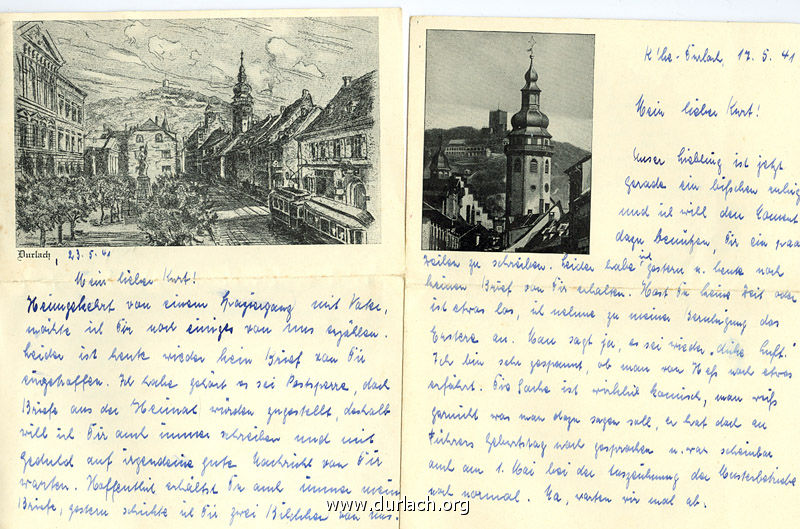 Durlach, 23.5.41
Mein lieber Kurt!
Heimgekehrt von einem Spaziergang mit Vater,
möchte ich Dir noch einiges von uns erzählen.
Leider ist heute wieder kein Brief von Dir
eingetroffen. Ich habe gehört es sei Postsperre, doch
Briefe aus der Heimat würden zugestellt, deshalb
will ich Dir auch immer schreiben und mit
Geduld auf irgendeine gute Nachricht von Dir
warten. Hoffentlich erhältst Du auch immer meine
Briefe, gestern schickte ich Dir zwei Bildchen von uns.
K'he-Durlach, 17.5.41
Mein lieber Kurt!
Unser Liebling ist jetzt
gerade ein bißchen ruhig
und ich will den Moment
dazu benützen, Dir ein paar
Zeilen zu schreiben. Leider habe ich gestern u. heute noch
keinen Brief von Dir erhalten. Hast Du keine Zeit oder
ist etwas los, ich nehme zu meiner Beruhigung das
Erstere an. Man sagt ja, es sei wieder „dicke Luft."
Ich bin sehr gespannt, ob man von Heß noch etwas
erfährt. Die Sache ist wirklich komisch, man weiß
garnicht was man dazu sagen soll, er hat doch an
Führers Geburtstag noch gesprochen u. war scheinbar
auch am 1. Mai bei der Auszeichnung der Musterbetriebe
noch normal. Na, warten wir mal ab.
www.durlach.org